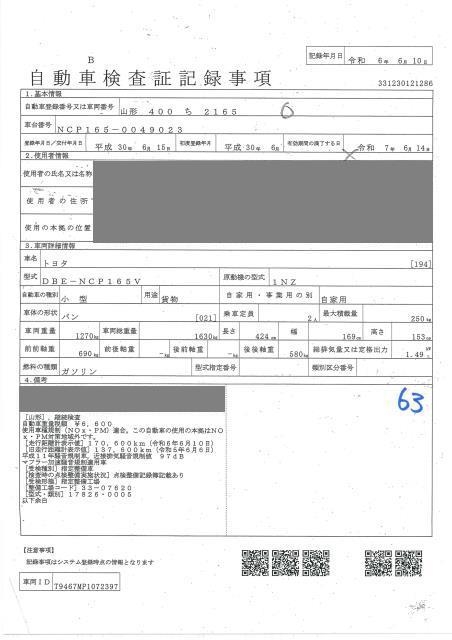 B
記録年月日 令和 6年 6月10日
自動車検査証記録事項
331230121286
1.基本情報
自動車登録番号又は車両番号 山形 400 ち 2165
6
車台番号 NCP165-0049023
登録年月日/交付年月日 平成 30年 6月 15日 初度登録年月 平成 30年 6月 有効期間の満了する日 令和 7年 6月14日
2.使用者情報
使用者の氏名又は名称
使用者の住所
使用の本拠の位置
3.車両詳細情報
車名 トヨタ [194]
型式 DBE-NCP165V 原動機の型式 1NZ
自動車の種別 小型 用途 貨物 自家用・事業用の別 自家用
車体の形状 バン [021] 乗車定員 2人 最大積載量 250kg
車両重量 1270kg 車両総重量 1630kg 長さ 424cm 幅 169cm 高さ 153cm
前前軸重 690kg 前後軸重 -kg 後前軸重 -kg 後後軸重 580kg 総排気量又は定格出力 1.49
燃料の種類 ガソリン 型式指定番号 類別区分番号
4.備考
63
[山形],継続検査
自動車重量税額 ¥6,600
使用車種規制(NOx・PM)適合。この自動車の使用の本拠はNO
x・PM対策地域外です。
[走行距離計表示値]170,600km(令和6年6月10日)
[旧走行距離計表示値]137,600km(令和5年6月6日)
平成11年騒音規制車,近接排気騒音規制値 97dB
マフラー加速騒音規制適用車
[受検種別]指定整備車
[検査時の点検整備実施状況]点検整備記録簿記載あり
[受検形態]指定整備工場
[整備工場コード]33-07620
[型式・類別]17826-0005
以下余白
【注意事項】
記録事項はシステム登録時点の情報となります
車両ID T9467MP1072397